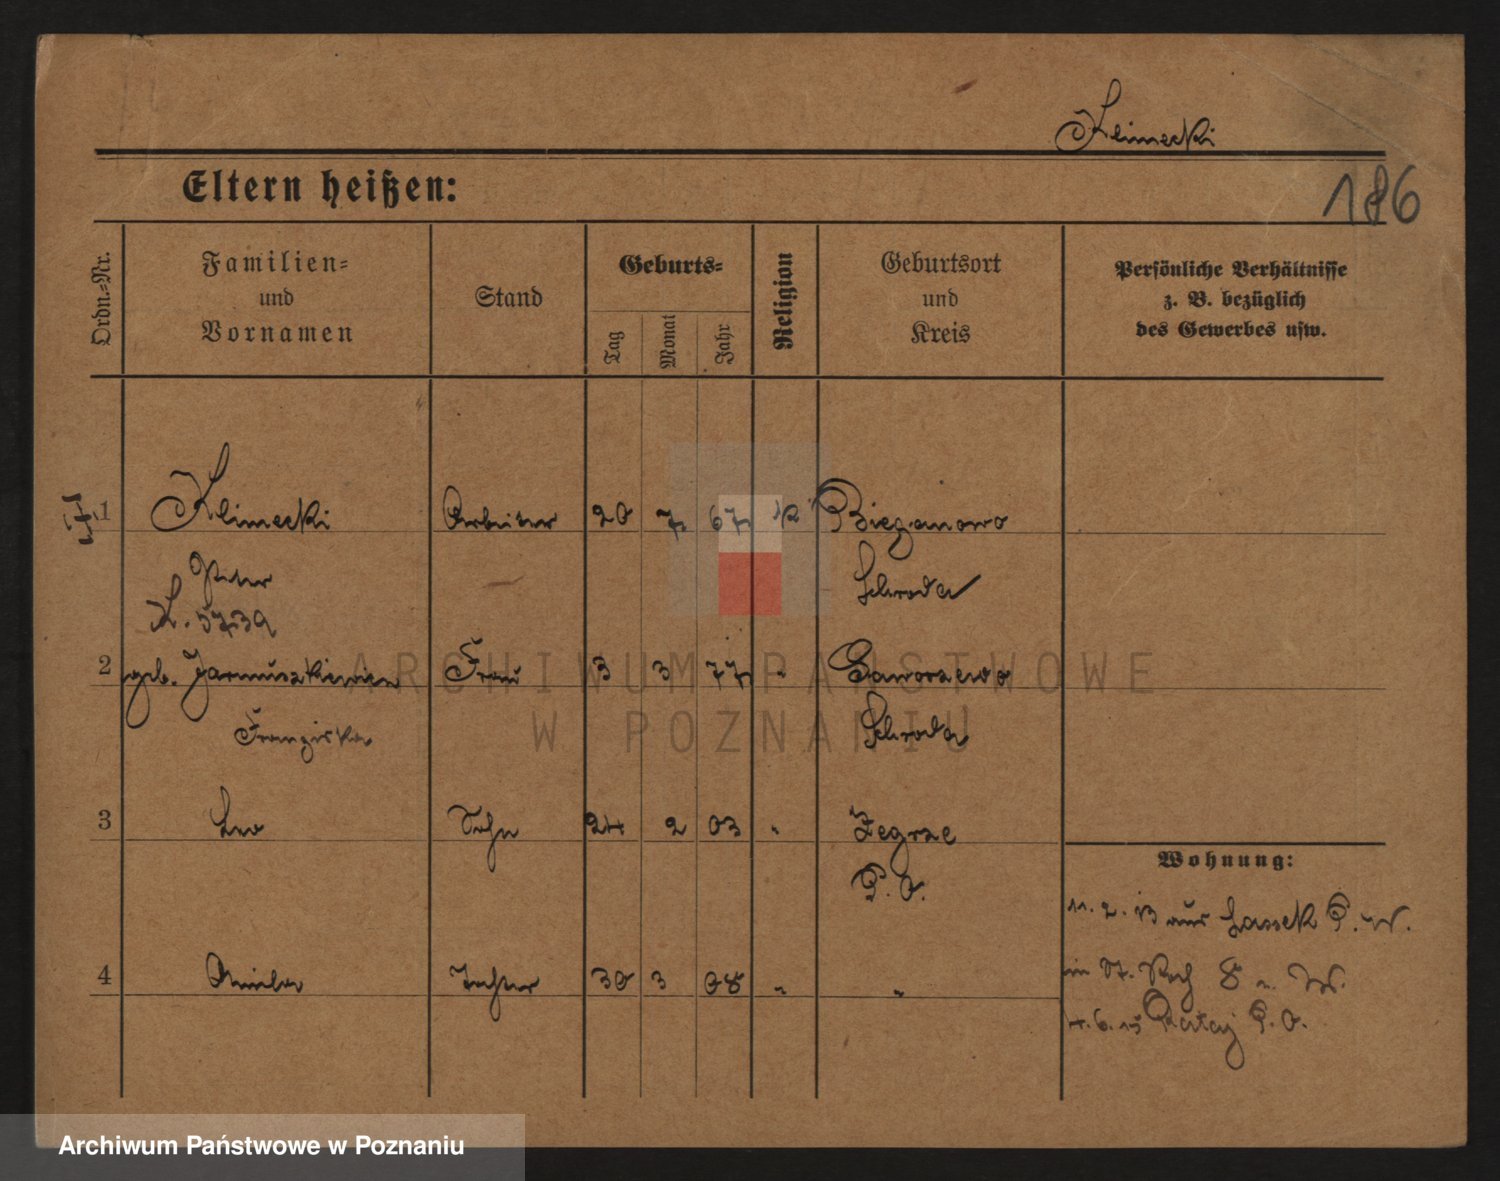 Klimecki
Eltern heißen:
186
Ordn.-Nr.
Familien-
und
Vornamen
Stand
Geburts-
Tag
Monat
Jahr
Religion
Geburtsort
und
Kreis
Persönliche Verhältnisse
z. B. bezüglich
des Gewerbes usw.
1 Klimecki Arbeiter 20 7 67 k Bieganowo
Peter Schroda
K. 5739
2 geb. Jarmuszkiewicz Frau 3 3 77 " Gaworzewo
Franziska Schroda
3 Leo Sohn 24 2 03 " Zegrze
P. O.
Wohnung:
11. 2. 13 aus Lassek P. W.
in St. Roch 8 n. W.
4. 6. 15 Rataj P. O.
4 Tochter 30 3 08 " "
ARCHIWUM PAŃSTWOWE
W POZNANIU
Archiwum Państwowe w Poznaniu